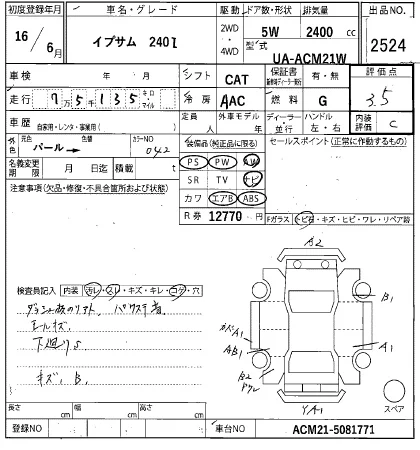 初度登録年月 車名・グレード 駆動 ドア数・形状 排気量 出品NO.
16年 6月 イプサム 240i 2WD ・ 4WD 5W 2400 cc 2524
型式 UA-ACM21W
車検 年 月 シフト CAT 保証書 有・無 評価点
走行 7万5千135 キロ マイル 冷房 AAC 燃料 G 3.5
車歴 自家用・レンタ・事業用( ) 定員 人 外車モデル 年 ディーラー・並行 ハンドル 左・右 内装評価 C
外色 元色 パール → 色替 カラーNO 042 装備品(純正品に限る) セールスポイント(正常に作動するもの)
名義変更期限 月 日迄 積載 t PS PW AW
注意事項(欠品・修復・不具合箇所および状態) SR TV ナビ
カワ エアB ABS
R券 12770 円 Fガラス トビ石・キズ・ヒビ・ワレ・リペア跡
A2
検査員記入 内装 汚レ・スレ・キズ・キレ・コゲ・穴
B1
A1
AB1
A1
下廻りS
キズ、B.
B2
YA1
スペア
長さ cm 幅 cm 高さ cm
登録NO 車台NO ACM21-5081771